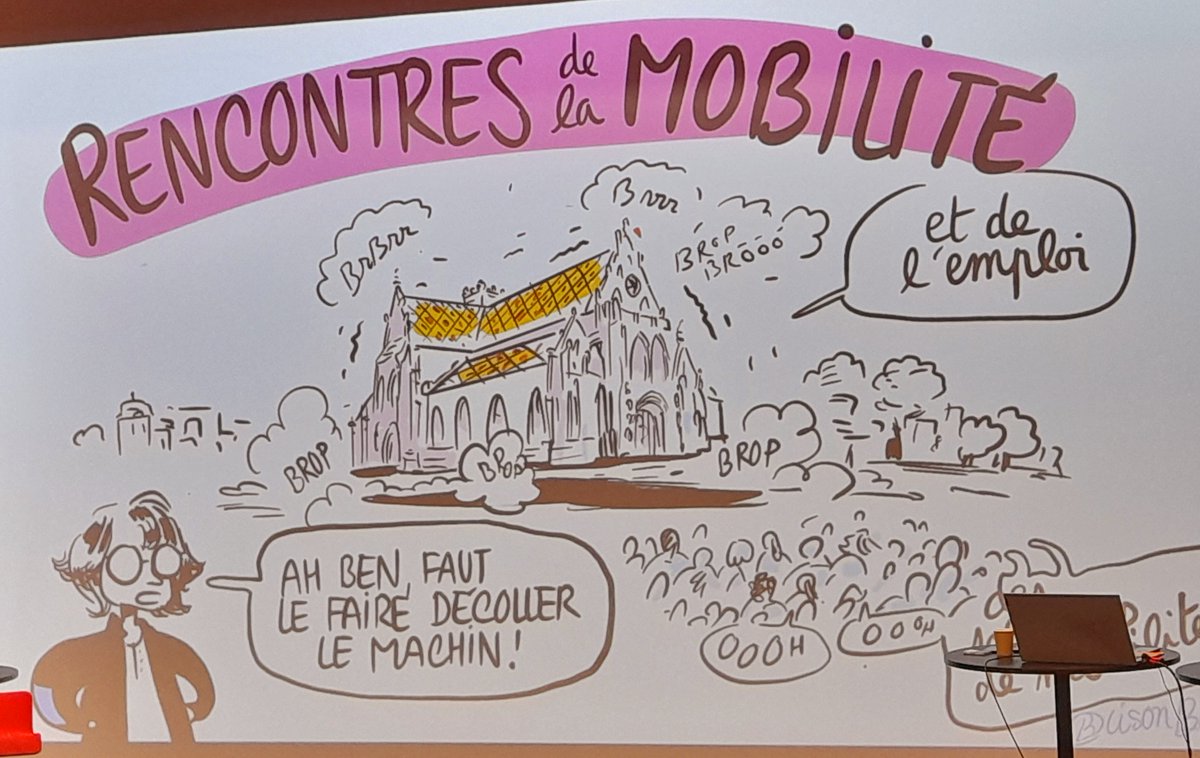 RENCONTRES de la MOBILITÉ
et de
l'emploi
BrBrr
Brrr
BROP
BROOO
BROP
BROP
BROP
AH BEN, FAUT
LE FAIRE DÉCOLLER
LE MACHIN !
OOOH
OOOH